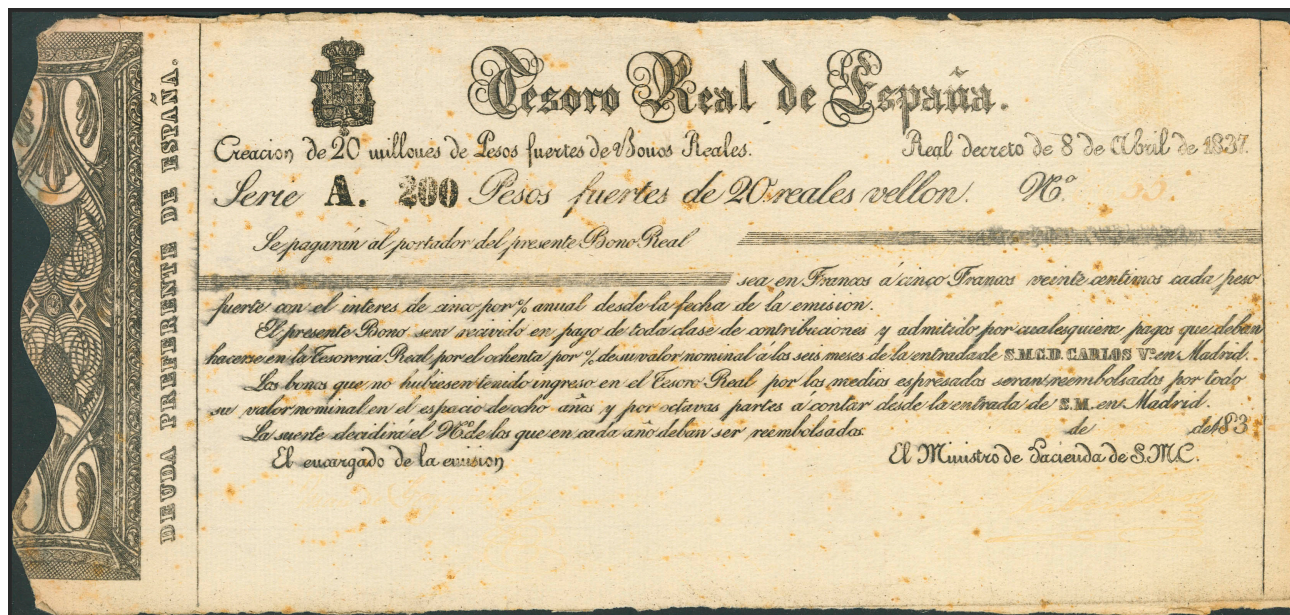 DEUDA PREFERENTE DE ESPAÑA.
Tesoro Real de España.
Creacion de 20 millones de Pesos fuertes de Bonos Reales. Real decreto de 8 de Abril de 1837.
Serie A. 200 Pesos fuertes de 20 reales vellon. Nº 33.
Se pagarán al portador del presente Bono Real
sea en Francos á cinco Francos veinte centimos cada peso
fuerte con el interes de cinco por % anual desde la fecha de la emision.
El presente Bono sera recivido en pago de toda clase de contribuciones y admitido por cualesquiera pagos que deban
hacerse en la Tesoreria Real por el ochenta por % de su valor nominal á los seis meses de la entrada de S.M.C.D. CARLOS Vº en Madrid.
Los bonos que no hubiesen tenido ingreso en el Tesoro Real por los medios espresados seran reembolsados por todo
su valor nominal en el espacio de ocho años y por octavas partes á contar desde la entrada de S.M. en Madrid.
La suerte decidirá el Nº de los que en cada año deban ser reembolsados. de de 183
El encargado de la emision El Ministro de Hacienda de S.M.C.